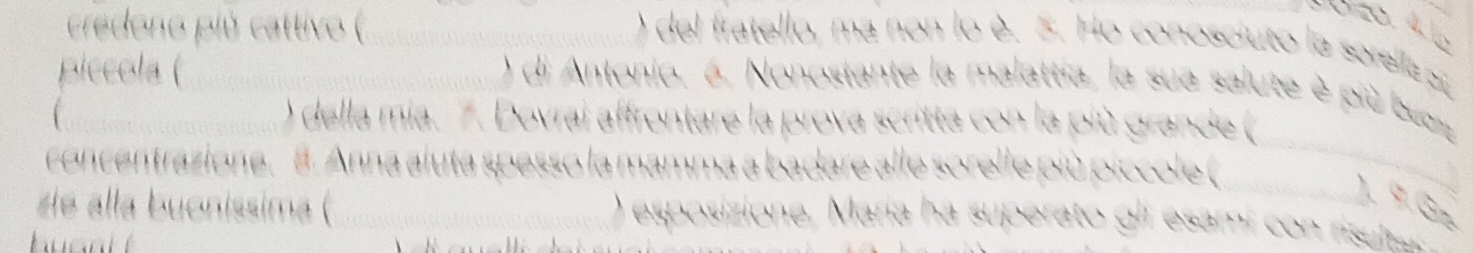 credono più cattivo ( ) del fratello, ma non lo è. 5. Ho conosciuto la sorella più
piccola ( ) di Antonio. 6. Nonostante la malattia, la sua salute è più buona
( ) della mia. 7. Dovrai affrontare la prova scritta con la più grande (
concentrazione. 8. Anna aiuta spesso la mamma a badare alle sorelle più piccole ( ). 9.
alla buonissima ( ) esposizione, Maria ha superato gli esami con risultati
buoni ( ) di quelli dei suoi compagni. 10. La più